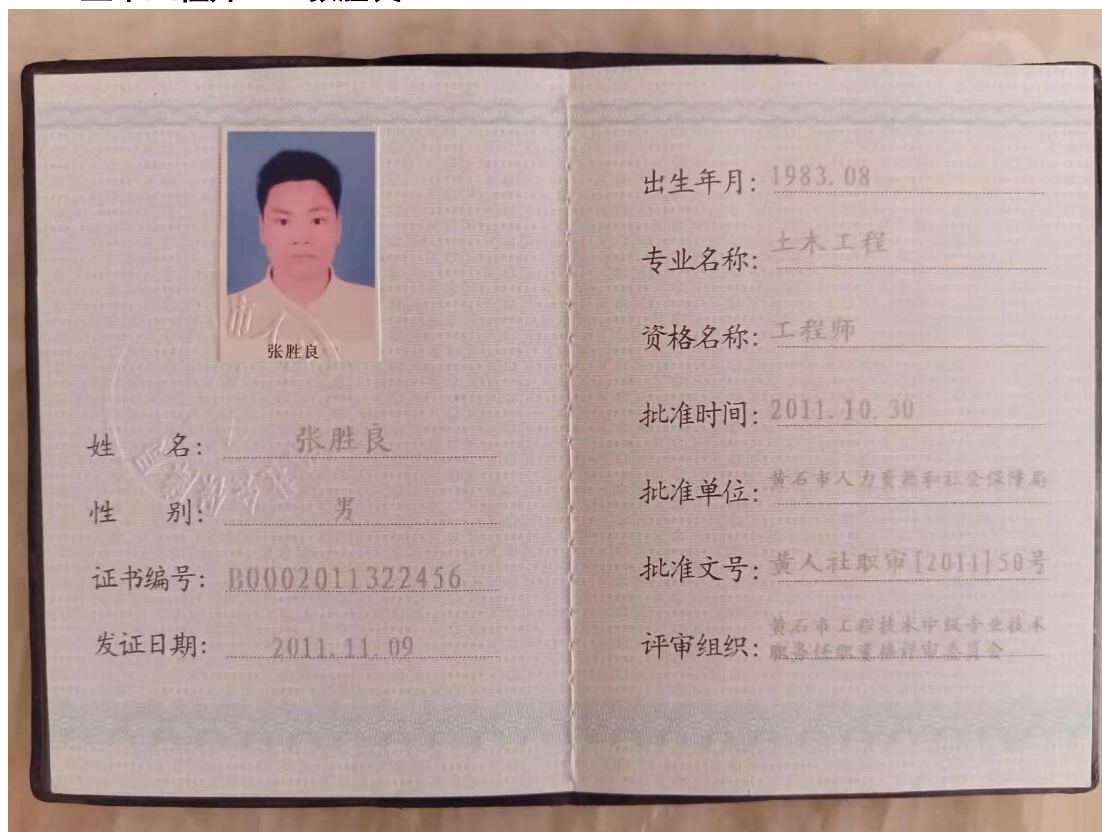 张胜良
姓 名: 张胜良
性 别: 男
证书编号: B0002011322456
发证日期: 2011.11.09
出生年月: 1983.08
专业名称: 土木工程
资格名称: 工程师
批准时间: 2011.10.30
批准单位: 黄石市人力资源和社会保障局
批准文号: 黄人社职审[2011]50号
评审组织: 黄石市工程技术中级专业技术
职务任职资格评审委员会